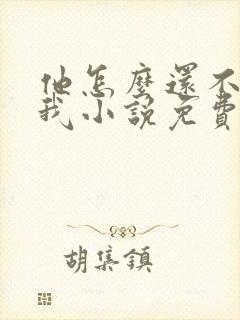 他怎麼還不
我小說免費
胡集鎮